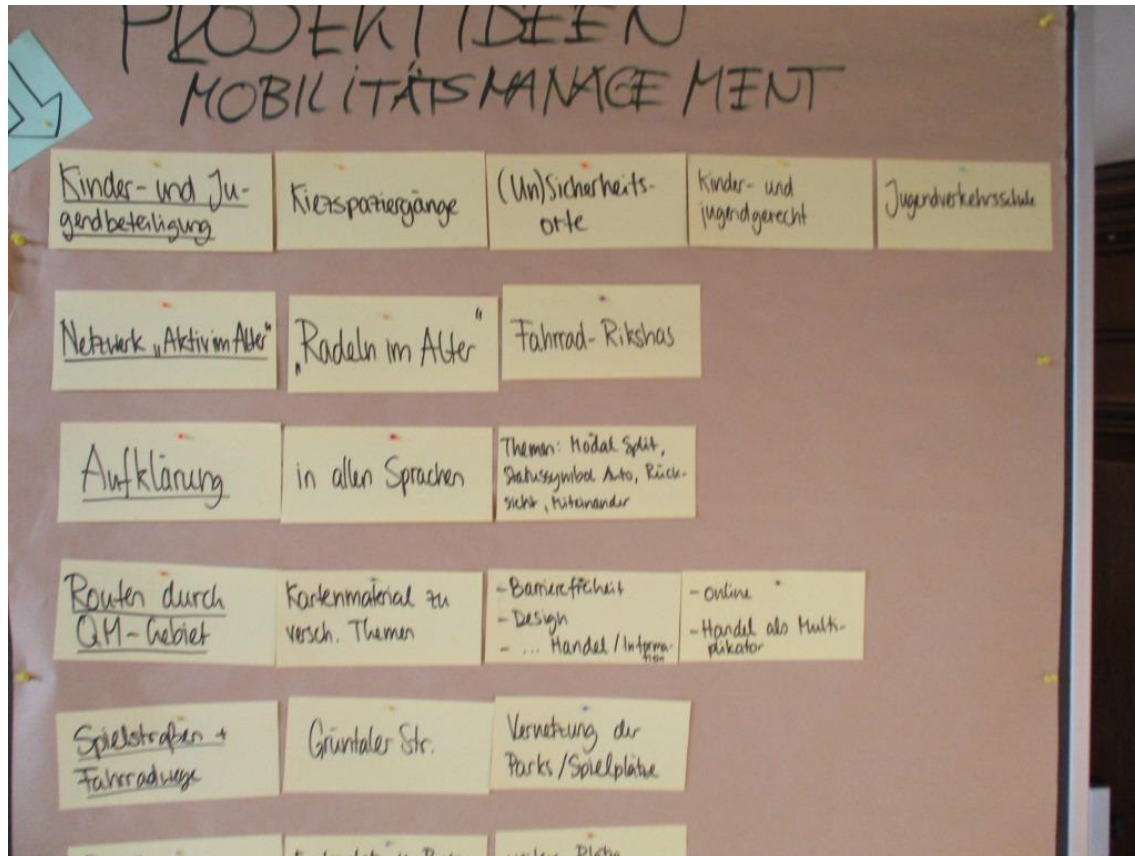 PROJEKTIDEEN
MOBILITÄTSMANAGEMENT
Kinder- und Ju-
gendbeteiligung
Kiezspaziergänge
(Un)Sicherheits-
orte
Kinder- und
jugendgerecht
Jugendverkehrsschule
Netzwerk „Aktiv im Alter“
„Radeln im Alter“
Fahrrad-Rikshas
Aufklärung
in allen Sprachen
Themen: Modal Split,
Statussymbol Auto, Rück-
sicht, Miteinander
Routen durch
QM-Gebiet
Kartenmaterial zu
versch. Themen
- Barrierefreiheit
- Design
- ... Handel / Informa-
tion
- online
- Handel als Multi-
plikator
Spielstraßen +
Fahrradwege
Grüntaler Str.
Vernetzung der
Parks / Spielplätze